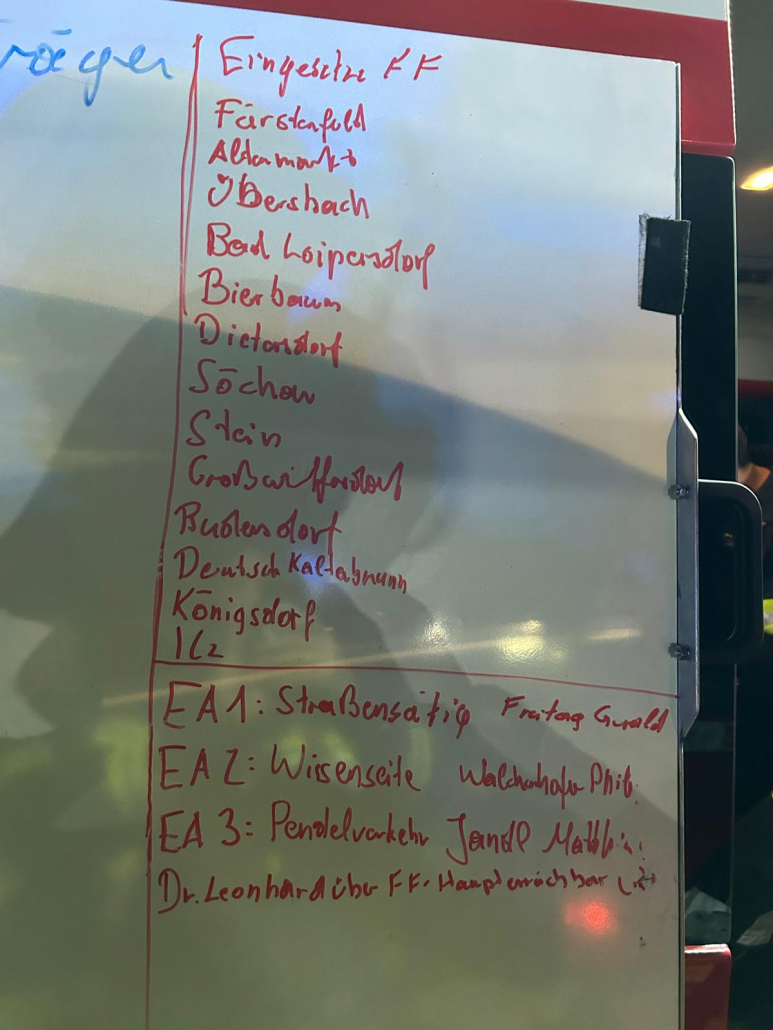 räger
Eingesetze FF
Fürstenfeld
Altenmarkt
Übersbach
Bad Loipersdorf
Bierbaum
Dietersdorf
Söchau
Stein
Großwilfersdorf
Rudersdorf
Deutsch Kaltenbrunn
Königsdorf
Ilz
EA1: Straßenseitig Freitag Gerald
EA2: Wiesenseite Phil.
EA 3: Pendelverkehr Jandl
Dr. Leonhard über FF.